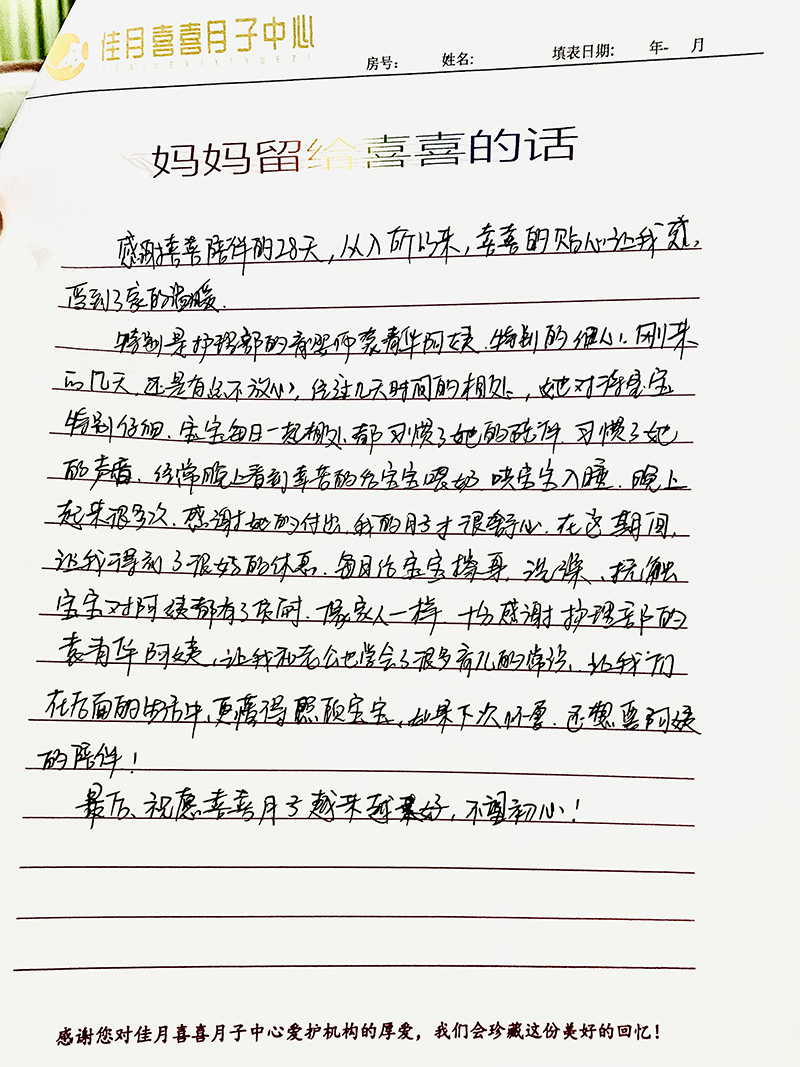 佳月喜喜月子中心
房号： 姓名： 填表日期： 年- 月
妈妈留给喜喜的话
感谢喜喜陪伴的28天，从入所以来，喜喜的贴心让我感
受到了家的温暖.
特别是护理部的育婴师袁青华阿姨.特别的细心.刚来
的几天.还是有点不放心，经过几天时间的相处，她对待宝宝
特别仔细.宝宝每日一起相处.都习惯了她的陪伴.习惯了她
的声音.经常晚上看到辛苦的给宝宝喂奶.哄宝宝入睡.晚上
起来很多次.感谢她的付出.我的月子才很舒心.在这期间，
让我得到了很好的休息.每日给宝宝擦身、洗澡、抚触
宝宝对阿姨都有了 像家人一样.十分感谢护理部的
袁青华阿姨，让我和老公也学会了很多育儿的常识、让我们
在后面的生活中，更懂得照顾宝宝，如果下次怀孕.还想要阿姨
的陪伴！
最后、祝愿喜喜月子越来越好，不忘初心！
感谢您对佳月喜喜月子中心爱护机构的厚爱，我们会珍藏这份美好的回忆！